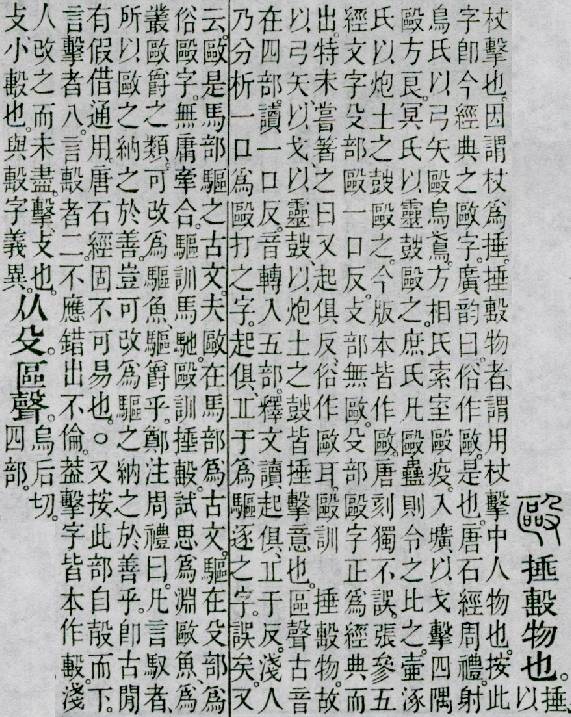 毆 捶毄物也。捶以
杖擊也。因謂杖爲捶。捶毄物者、謂用杖擊中人物也。按此
字卽今經典之敺字。廣韵曰俗作敺。是也。唐石經周禮射
鳥氏以弓矢毆烏鳶。方相氏索室毆疫。入壙以戈擊四隅
毆方良。冥氏以靈鼓毆之。庶氏凡毆蠱則令之比之。壺涿
氏以炮土之鼓毆之。今版本皆作敺。唐刻獨不誤。張參五
經文字殳部毆一口反。攴部無敺。殳部毆字正爲經典而
出。特未嘗箸之曰又起俱反俗作敺耳。毆訓捶毄物。故
以弓矢以戈以靈鼓以炮土之鼓皆捶擊意也。區聲古音
在四部。讀一口反。音轉入五部。釋文讀起俱、丠于反。淺人
乃分析一口爲毆打之字。起俱、丠于爲驅逐之字。誤矣。又
云。敺是馬部驅之古文。夫敺在馬部爲古文驅。在殳部爲
俗毆字。無庸牽合。驅訓馬馳。毆訓捶毄。試思爲淵敺魚、爲
叢敺爵之類。可改爲驅魚、驅爵乎。鄭注周禮曰。凡言馭者、
所以敺之納之於善。豈可改爲驅之納之於善乎。卽古閒
有假借通用。唐石經固不可易也。○又按此部自㱿而下。
言擊者八。言毄者二。不應錯出不倫。葢擊字皆本作毄。淺
人改之而未盡。擊、攴也。
攴小毄也。與毄字義異。从殳。區聲。烏后切。四部。